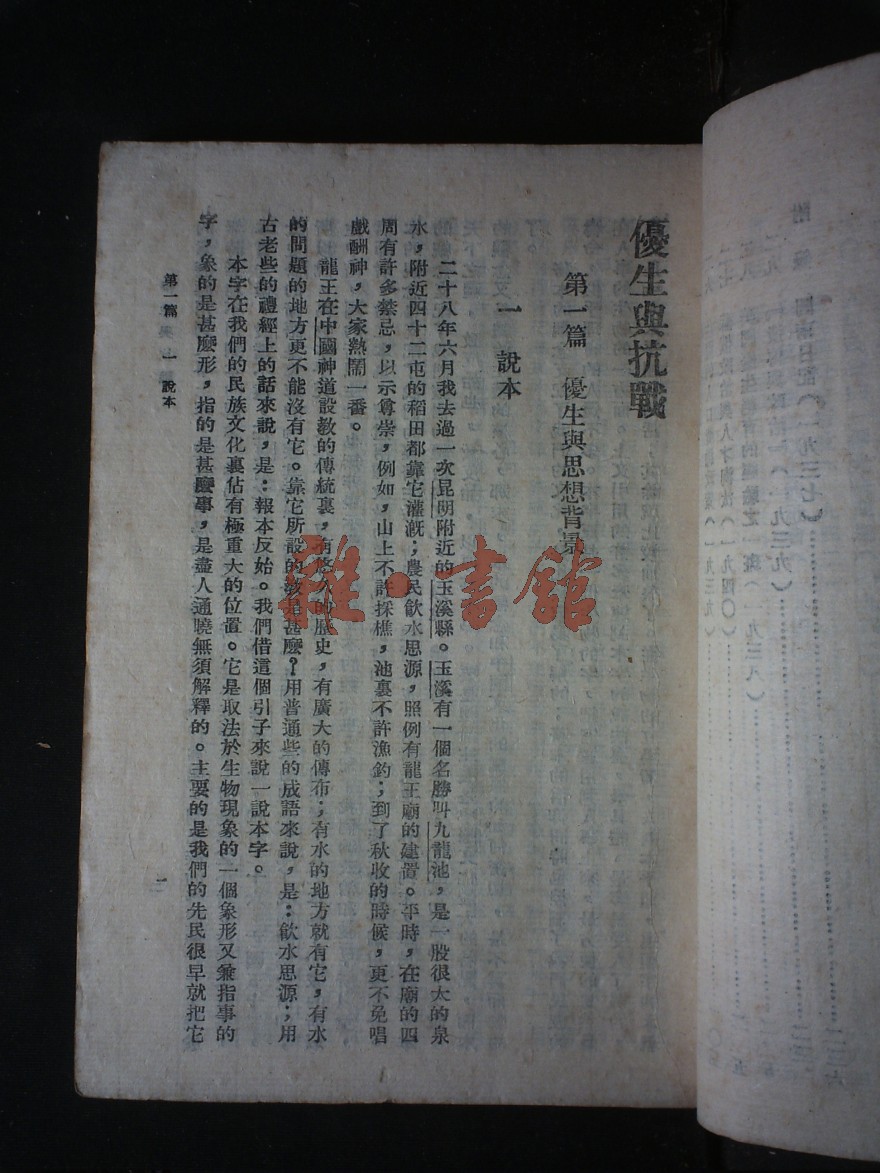 優生與抗戰
第一篇　優生與思想背景
一　說本
二十八年六月我去過一次昆明附近的玉溪縣。玉溪有一個名勝叫九龍池，是一股很大的泉
水，附近四十二屯的稻田都靠它灌漑；農民飲水思源，照例有龍王廟的建置。平時，在廟的四
周有許多禁忌，以示尊崇，例如，山上不許採樵，池裏不許漁釣；到了秋收的時候，更不免唱
戲酬神，大家熱鬧一番。
龍王在中國神道設敎的傳統裏，有悠久的歷史，有廣大的傳布；有水的地方就有它，有水
的問題的地方更不能沒有它。靠它所設的敎是甚麼？用普通些的成語來說，是：飲水思源；用
古老些的禮經上的話來說，是：報本反始。我們借這個引子來說一說本字。
本字在我們的民族文化裏佔有極重大的位置。它是取法於生物現象的一個象形又兼指事的
字，象的是甚麼形，指的是甚麼事，是盡人通曉無須解釋的。主要的是我們的先民很早就把它
第一篇　一　說本
一
雜·書館
附
（一九三七）
（一九三九）
（一九三八）
（一九四〇）
（一九三九）